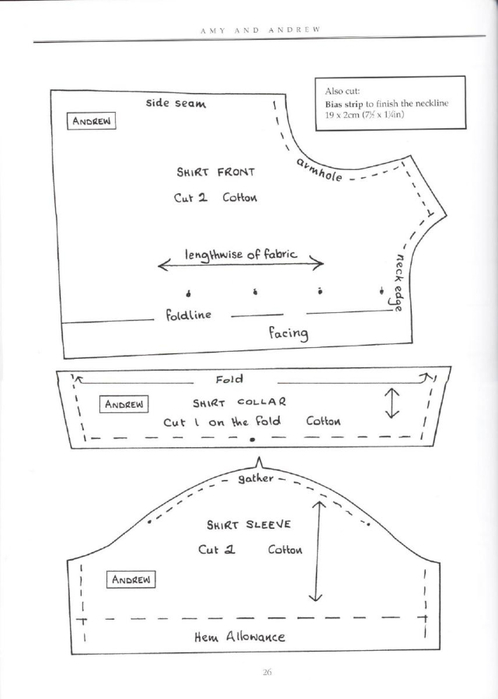 AMY AND ANDREW
Also cut:
Bias strip to finish the neckline
19 x 2cm (7½ x ¾in)
side seam
ANDREW
armhole
SHIRT FRONT
Cut 2 Cotton
lengthwise of fabric
neck edge
foldline
facing
Fold
ANDREW
SHIRT COLLAR
Cut 1 on the fold Cotton
gather
SHIRT SLEEVE
Cut 2 Cotton
ANDREW
Hem Allowance
26